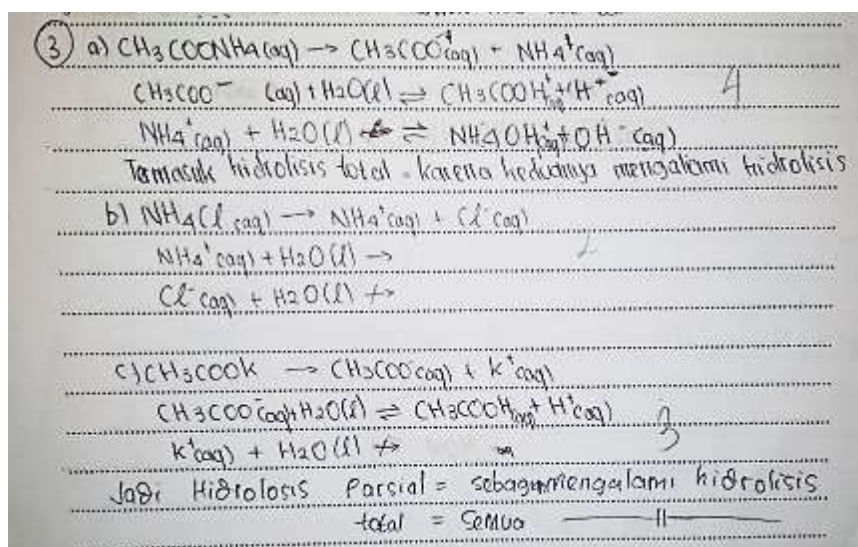 ③ a) CH3COONH4(aq) → CH3COO⁻(aq) + NH4⁺(aq)
CH3COO⁻ (aq) + H2O(l) ⇌ CH3COOH(aq) + H⁺(aq) 4
NH4⁺(aq) + H2O(l) ⇌ NH4OH(aq) + OH⁻(aq)
Termasuk hidrolisis total . karena keduanya mengalami hidrolisis
b) NH4Cl(aq) → NH4⁺(aq) + Cl⁻(aq)
NH4⁺(aq) + H2O(l) →
Cl⁻(aq) + H2O(l) ↛
c) CH3COOK → CH3COO⁻(aq) + K⁺(aq)
CH3COO⁻(aq) + H2O(l) ⇌ CH3COOH(aq) + H⁺(aq)
K⁺(aq) + H2O(l) ↛ 3
Jadi Hidrolosis Parsial = mengalami hidrolisis
total = Semua —〃—